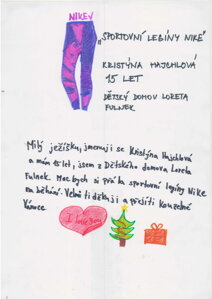 NIKE✓
„SPORTOVNÍ LEGÍNY NIKE“
KRISTÝNA HAJCHLOVÁ
15 LET
DĚTSKÝ DOMOV LORETA
FULNEK
Milý ježíšku, jmenuji se Kristýna Hajchlová
a mám 15 let, jsem z Dětského domova Loreta
Fulnek. Moc bych si přála sportovní legíny Nike
na běhání. Velmi ti děkuji a přeji ti kouzelné
Vánoce
I love you